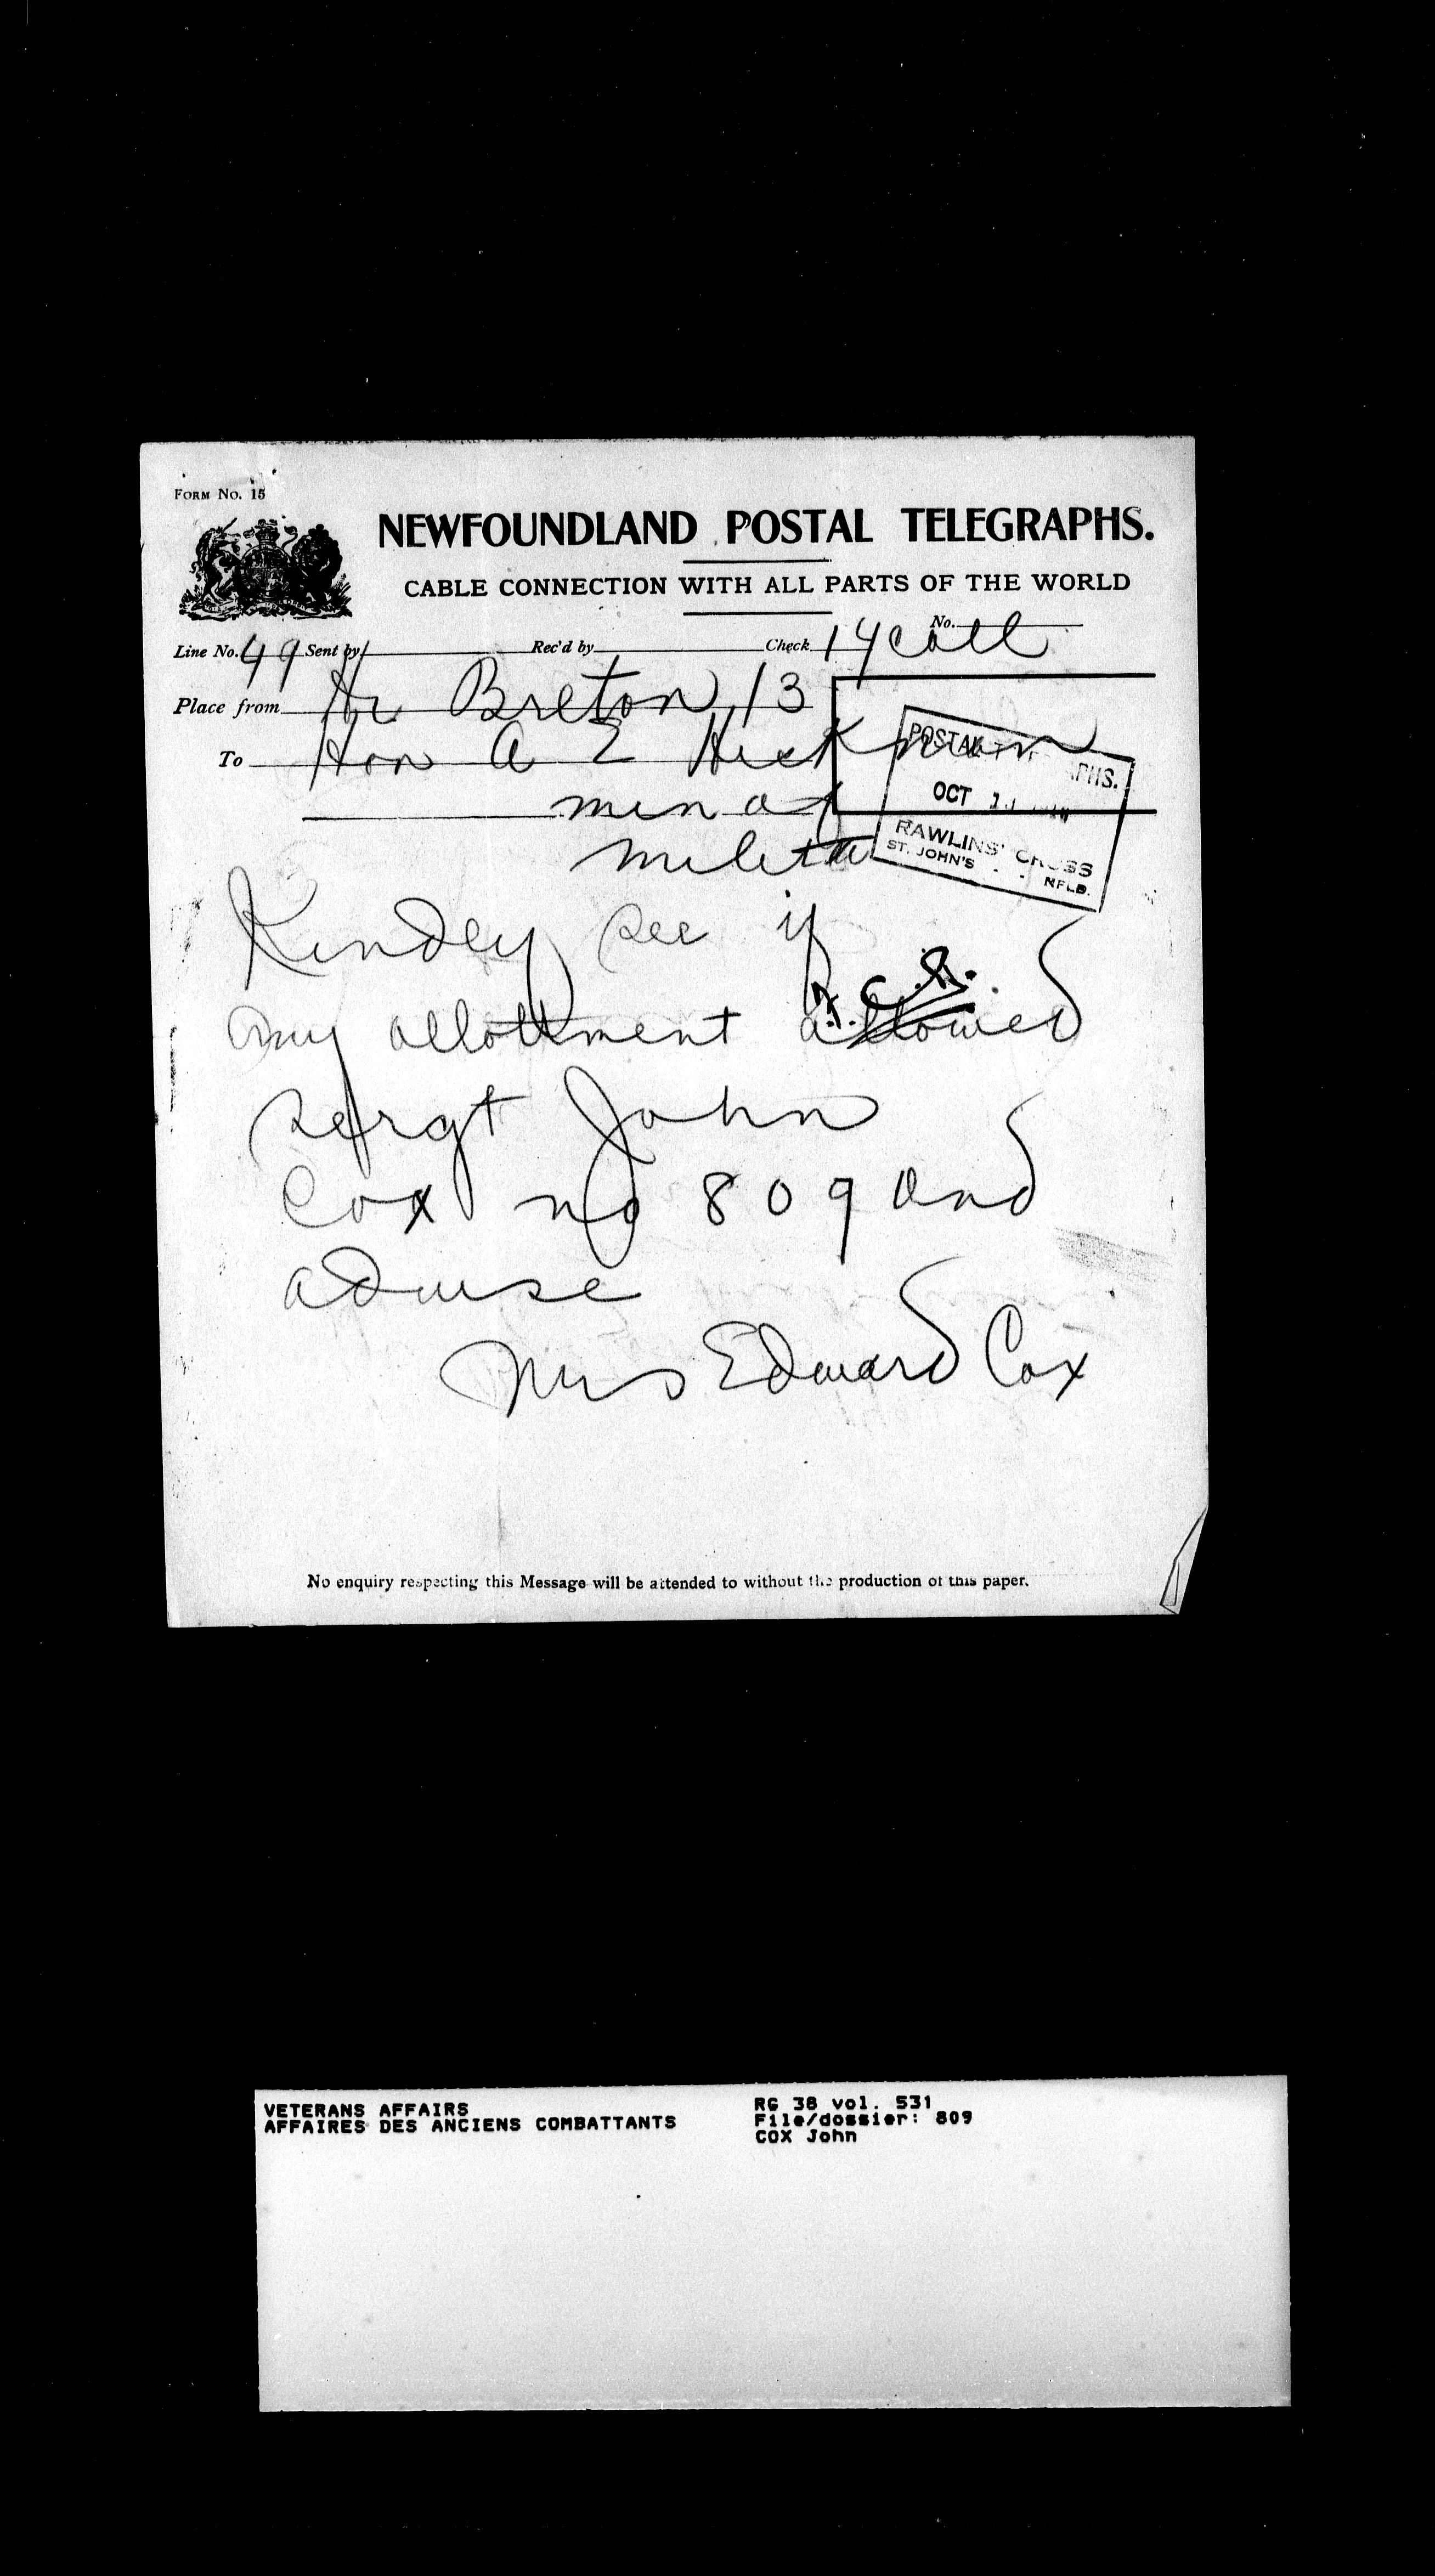 FORM No. 15
NEWFOUNDLAND POSTAL TELEGRAPHS.
CABLE CONNECTION WITH ALL PARTS OF THE WORLD
No.
Line No. 49 Sent by Rec'd by Check 14 coll
Place from Hr Breton 13
To Hon A E Hickman
min of
militia
POSTAL
PHS.
OCT
RAWLINS' CROSS
ST. JOHN'S - - NFLD.
Kindly see if
any allottment allowed
sergt John
Cox no 809 and
advise
Mrs Edward Cox
No enquiry respecting this Message will be attended to without the production of this paper.
VETERANS AFFAIRS
AFFAIRES DES ANCIENS COMBATTANTS
RG 38 vol. 531
File/dossier: 809
COX John